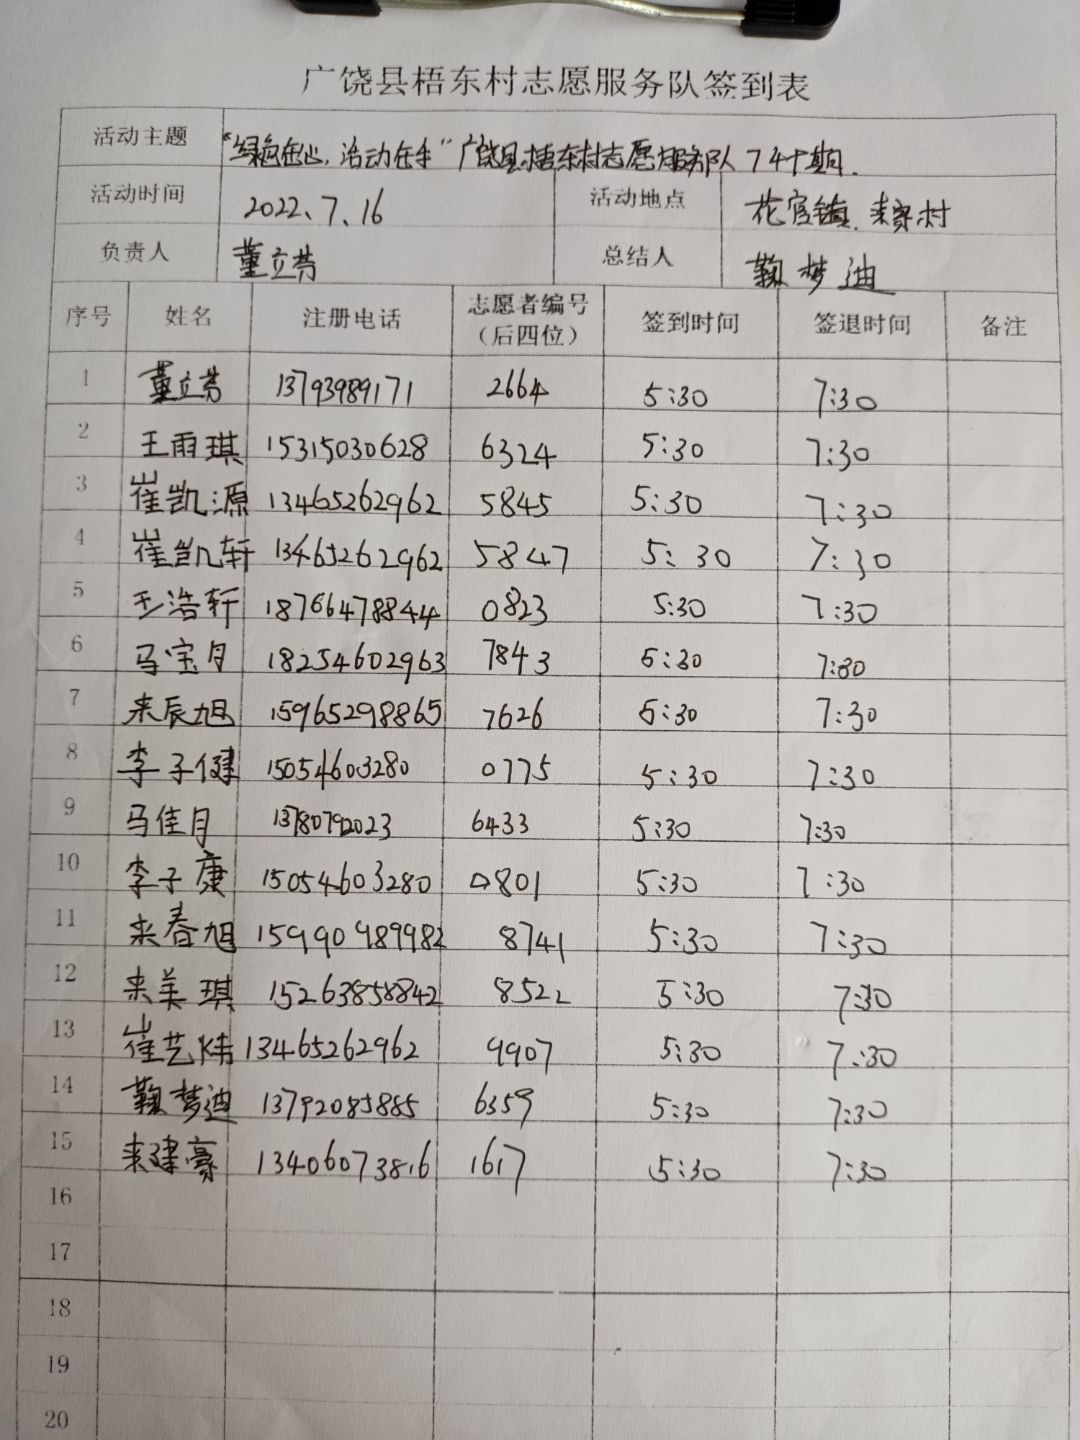 广饶县梧东村志愿服务队签到表
活动主题 “绿色在心，活动在手”广饶县梧东村志愿服务队74十期.
活动时间 2022、7、16 活动地点 花官镇.来家村
负责人 董立芬 总结人 鞠梦迪
序号 姓名 注册电话 志愿者编号（后四位） 签到时间 签退时间 备注
1 董立芬 13793989171 2664 5:30 7:30
2 王雨琪 15315030628 6324 5:30 7:30
3 崔凯源 13465262962 5845 5:30 7:30
4 崔凯轩 13465262962 5847 5:30 7:30
5 王浩轩 18766478844 0823 5:30 7:30
6 马宝月 18254602963 7843 5:30 7:30
7 来辰旭 15965298865 7626 5:30 7:30
8 李子健 15054603280 0775 5:30 7:30
9 马佳月 13780792023 6433 5:30 7:30
10 李子康 15054603280 0801 5:30 7:30
11 来春旭 15990989982 8741 5:30 7:30
12 来美琪 15263858842 8522 5:30 7:30
13 崔艺炜 13465262962 9907 5:30 7:30
14 鞠梦迪 13792085885 6359 5:30 7:30
15 来建豪 13406073816 1617 5:30 7:30
16
17
18
19
20